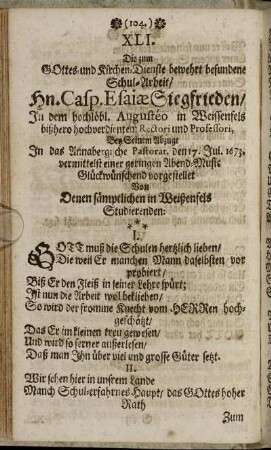 (104.)
XLI.
Die zum
GOttes und Kirchen-Dienste bewehrt befundene
Schul-Arbeit/
Hn. Casp. Esaiæ Siegfrieden/
In dem hochlöbl. Augustéo in Weissenfels
bißhero hochverdienten Rectori und Professori,
Bey Seinem Abzuge
In das Annabergische Pastorat. den 17. Jul. 1673.
vermittelst einer geringen Abend-Music
Glückwünschend vorgestellet
Von
Denen sämptlichen in Weißenfels
Studierenden:
***
I.
GOTT muß die Schulen hertzlich lieben/
Die weil Er manchen Mann daselbsten vor
probiert/
Biß Er den Fleiß in seiner Lehre spürt;
Ist nun die Arbeit wol beklieben/
So wird der fromme Knecht vom HERRen hoch-
geschätzt/
Das Er im kleinen treu gewesen/
Und wird so ferner außerlesen/
Daß man Ihn über viel und grosse Güter setzt.
II.
Wir sehen hier in unsrem Lande
Manch Schul-erfahrnes Haupt/ das GOttes hoher
Rath
Zum